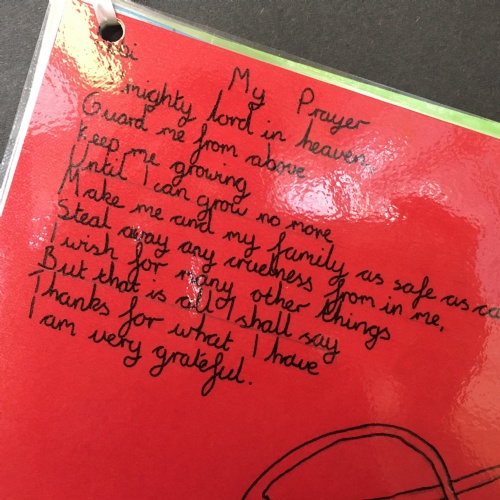 My Prayer
mighty lord in heaven,
Guard me from above
Keep me growing
Until I can grow no more
Make me and my family as safe as ca
Steal away any cruelness from in me,
I wish for many other things
But that is all I shall say
Thanks for what I have
I am very grateful.